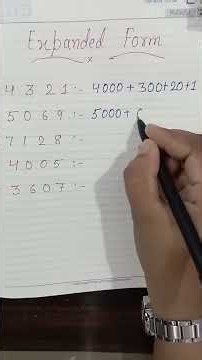 Expanded Form
x
4321:- 4000+300+20+1
5069:- 5000+0
7128:-
4005:-
3607:-